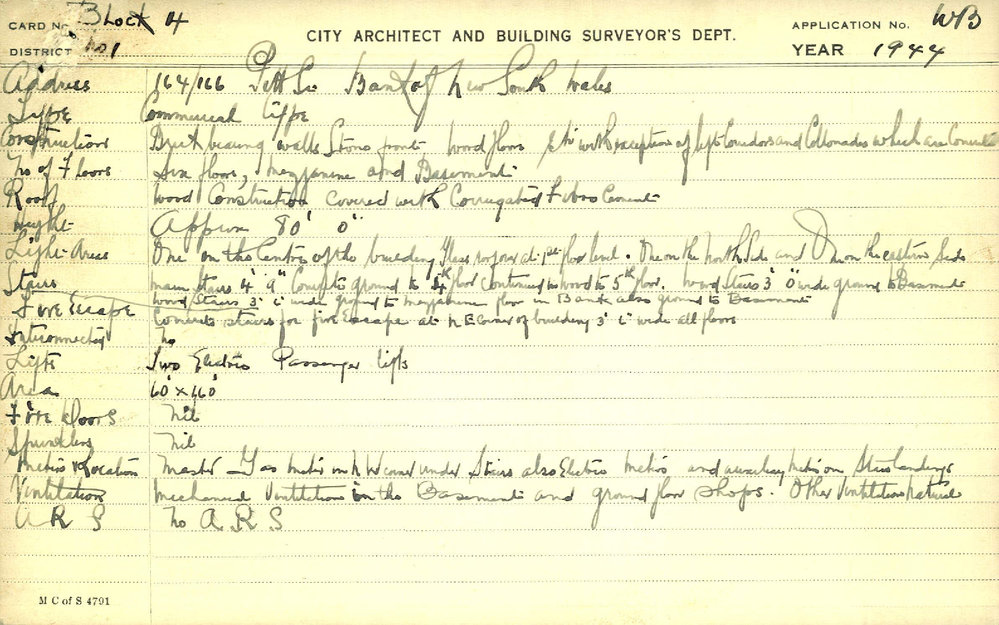 CARD No. Block 4
CITY ARCHITECT AND BUILDING SURVEYOR'S DEPT.
APPLICATION No. WB
DISTRICT No 1
YEAR 1944
Address 164/166 Pitt St. Bank of New South Wales
Type Commercial type
Construction Brick bearing walls Stone front wood floors etc with exception of lift corridors and Collonades which are Concrete
No of Floors Six floors, mezzanine and Basement
Roof Wood Construction covered with Corrugated Fibro Cement
Height Approx 80' 0"
Light Areas One in the Centre of the building Glass roof over at 1st floor level. One on the North Side and One on the eastern Side
Stairs main Stairs 4' 9" Concrete ground to 4th floor Continued in wood to 5th floor. Wood Stairs 3' 0" wide ground to Basement
wood Stairs 3' 6" wide ground to mezzanine floor in Bank also ground to Basement
Fire Escape Concrete stairs for fire Escape at N E Corner of building 3' 6" wide all floors
Interconnected No
Lifts Two Electric Passenger lifts
Area 60' x 160'
Fire Doors Nil
Sprinklers Nil
Meters & Location Master Gas meter in N W corner under Stairs also Electric Meters and auxiliary meters on Stair landings
Ventilation Mechanical Ventilation in the Basement and ground floor shops. Other Ventilation natural
A R S No A. R. S
M C of S 4791